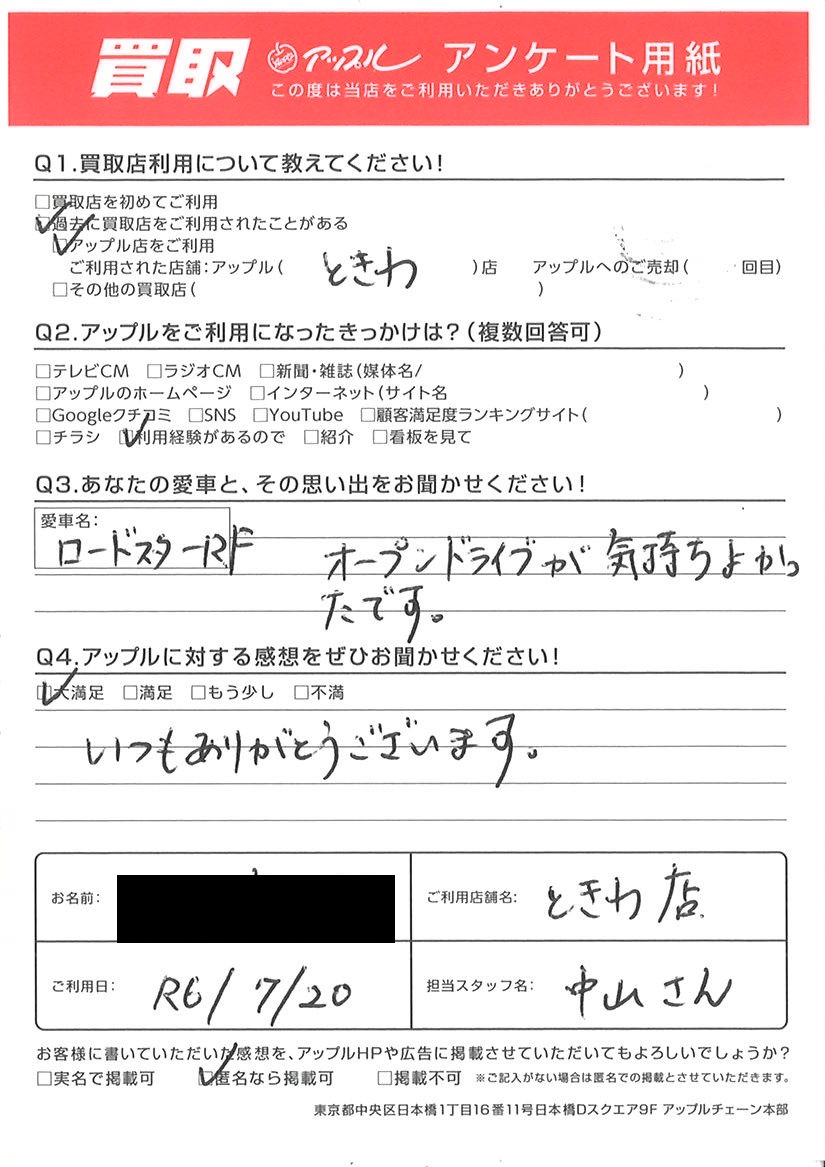 買取 アップル アンケート用紙
この度は当店をご利用いただきありがとうございます!
Q1.買取店利用について教えてください!
□買取店を初めてご利用
☑過去に買取店をご利用されたことがある
☑アップル店をご利用
ご利用された店舗:アップル( ときわ )店 アップルへのご売却( 回目)
□その他の買取店( )
Q2.アップルをご利用になったきっかけは?(複数回答可)
□テレビCM □ラジオCM □新聞・雑誌(媒体名/ )
□アップルのホームページ □インターネット(サイト名 )
□Googleクチコミ □SNS □YouTube □顧客満足度ランキングサイト( )
□チラシ ☑利用経験があるので □紹介 □看板を見て
Q3.あなたの愛車と、その思い出をお聞かせください!
愛車名:
ロードスターRF オープンドライブが気持ちよかっ
たです。
Q4.アップルに対する感想をぜひお聞かせください!
☑大満足 □満足 □もう少し □不満
いつもありがとうございます。
お名前: ご利用店舗名: ときわ店
ご利用日: R6/7/20 担当スタッフ名: 中山さん
お客様に書いていただいた感想を、アップルHPや広告に掲載させていただいてもよろしいでしょうか?
□実名で掲載可 ☑匿名なら掲載可 □掲載不可 ※ご記入がない場合は匿名での掲載とさせていただきます。
東京都中央区日本橋1丁目16番11号日本橋Dスクエア9F アップルチェーン本部